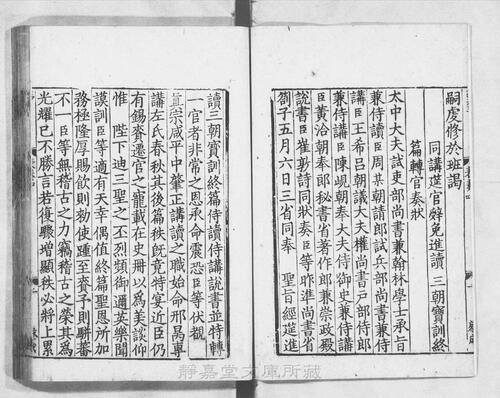 嗣虔修於班謁
同講莚官辭免進讀 三朝寶訓終
篇轉官奏狀
太中大夫試吏部尚書兼翰林學士承旨
兼侍讀臣周某朝請郎試兵部尚書兼侍
講臣王希呂朝議大夫權尚書戸部侍郎
兼侍講臣陳峴朝奉大夫侍御史兼侍講
臣黄洽朝奉郎秘書省著作郎兼崇政殿
說書臣崔敦詩同狀奏臣等昨準尚書省
劄子五月六日三省同奉 聖旨經莚進
讀三朝寶訓終篇侍讀侍講說書並特轉
一官者非常之恩承命震恐臣等伏觀
真宗咸平中肇正講讀之職始命邢昺專
講左氏春秋其後篇秩既竟特宴近臣仍
有錫賚遷官之寵載在史冊以為美談仰
惟 陛下迪三聖之丕烈頻御邇英樂聞
謨訓臣等適有天幸偶值終篇聖恩所加
務極隆厚賜飲則勑使踵至賚予則駢蕃
不一臣等無稽古之力竊稽古之榮其為
光耀已不勝言若復驟增顯秩必將上累
靜嘉堂文庫所藏